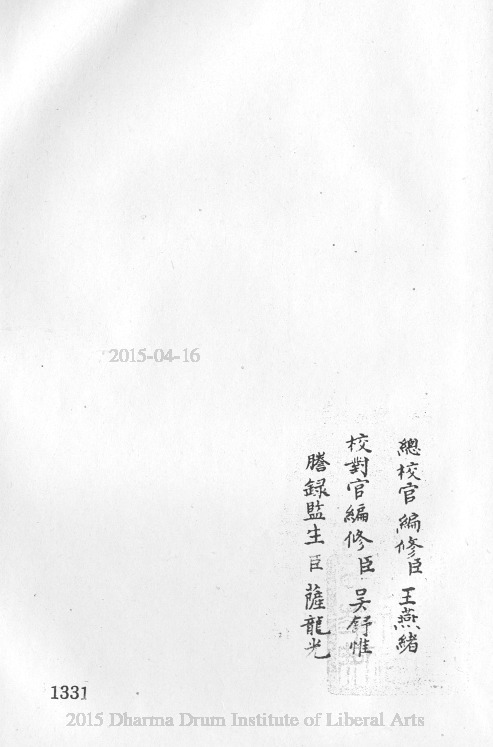 總校官編修臣王燕緒
校對官編修臣吳舒惟
謄録監生臣薩龍光
2015-04-16
1331
2015 Dharma Drum Institute of Liberal Arts